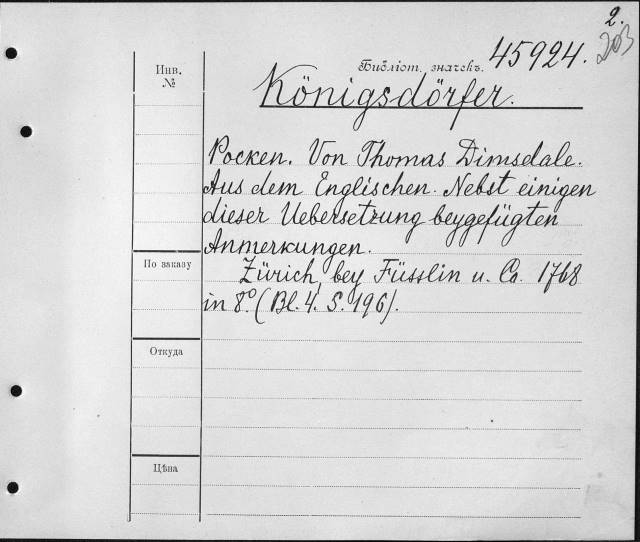 2.
203
Библіот. значекъ. 45924.
Königsdörfer.
Инв.
№
Pocken. Von Thomas Dimsdale.
Aus dem Englischen. Nebst einigen
dieser Uebersetzung beygefügten
Anmerkungen.
По заказу
Zürich, bey Füsslin u. Co. 1768
in 8º. (Bl. 4. S. 196).
Откуда
Цѣна